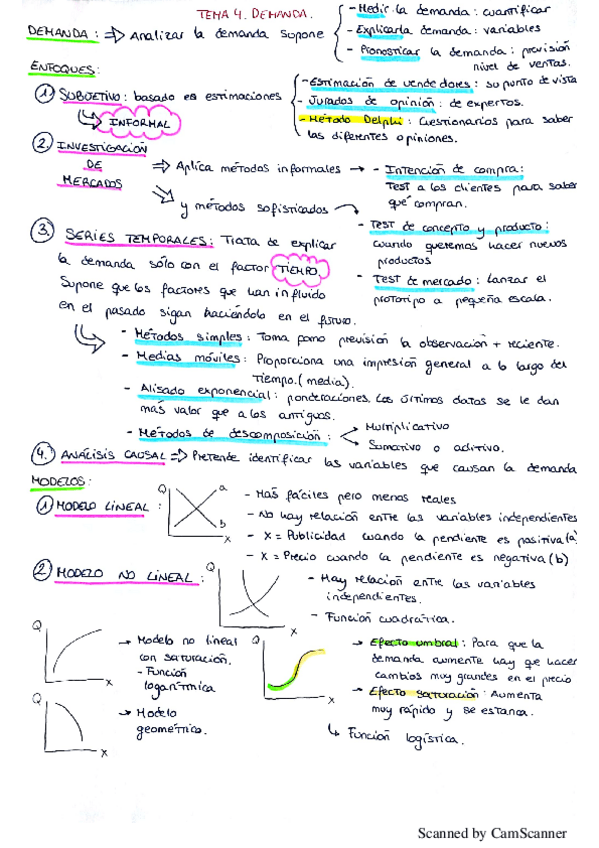 TEMA 4. DEMANDA.
DEMANDA: => Analizar la demanda supone
- Medir la demanda: cuantificar
- Explicarla demanda: variables
- Pronosticar la demanda: previsión
nivel de ventas.
ENFOQUES:
1) SUBJETIVO: basado en estimaciones
INFORMAL
- Estimación de vendedores: su punto de vista
- Jurados de opinión: de expertos.
- Método Delphi: Cuestionarios para saber
las diferentes opiniones.
2. INVESTIGACIÓN
DE
MERCADOS
=> Aplica métodos informales → - Intención de compra:
Test a los clientes para saber
qué compran.
y métodos sofisticados
- Test de concepto y producto:
cuando queremos hacer nuevos
productos
- Test de mercado: Lanzar el
prototipo a pequeña escala.
3. SERIES TEMPORALES: Trata de explicar
la demanda sólo con el factor TIEMPO.
Supone que los factores que han influido
en el pasado sigan haciéndolo en el futuro.
- Métodos simples: Toma como previsión la observación + reciente.
- Medias móviles: Proporciona una impresión general a lo largo del
tiempo. (media).
- Alisado exponencial: ponderaciones. Los últimos datos se le dan
más valor que a los antiguos.
- Métodos de descomposición:
Multiplicativo
Sumativo o aditivo.
4. ANÁLISIS CAUSAL => Pretende identificar las variables que causan la demanda
MODELOS:
1) MODELO LINEAL:
Q
a
b
x
- Más fáciles pero menos reales
- No hay relación entre las variables independientes
- X = Publicidad cuando la pendiente es positiva (a)
- X = Precio cuando la pendiente es negativa (b)
2) MODELO NO LINEAL:
Q
X
- Hay relación entre las variables
independientes.
- Función cuadrática.
Q
X
→ Modelo no lineal
con saturación.
- Función
logarítmica
Q
X
→ Modelo
geométrico.
Q
X
→ Efecto umbral: Para que la
demanda aumente hay que hacer
cambios muy grandes en el precio
→ Efecto saturación: Aumenta
muy rápido y se estanca.
↳ Función logística.
Scanned by CamScanner